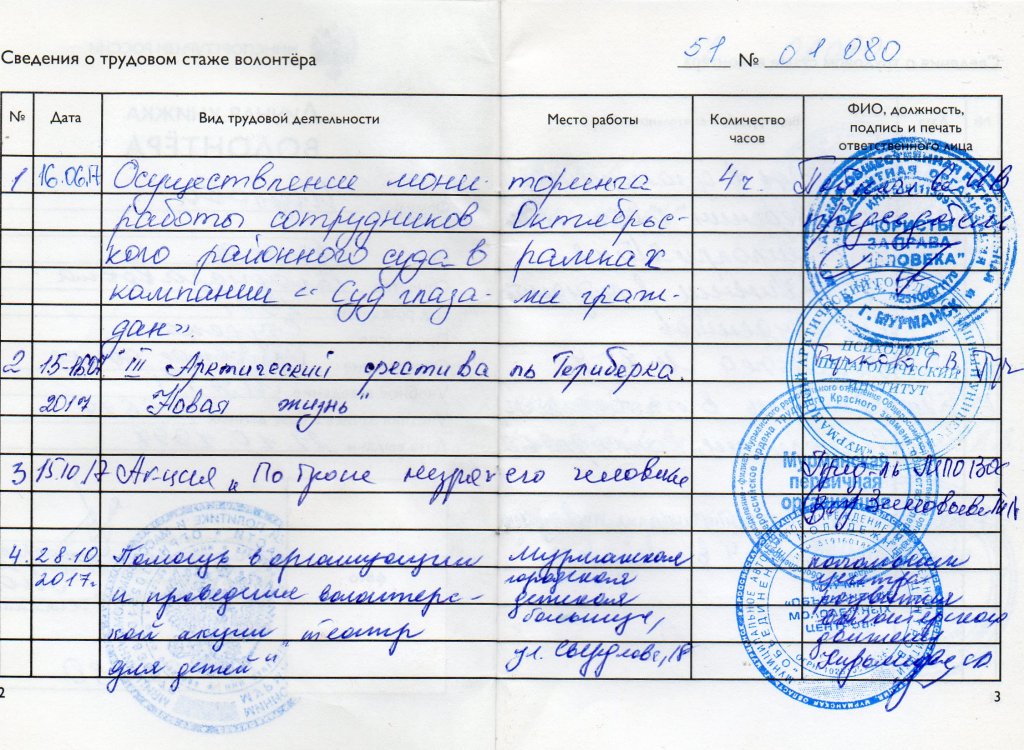 Сведения о трудовом стаже волонтёра
51 № 01 080
№ Дата Вид трудовой деятельности Место работы Количество часов ФИО, должность, подпись и печать ответственного лица
1 16.06.17 Осуществление мони- торинга 4 ч.
работы сотрудников Октябрьс-
кого районного суда в рамках
кампании «Суд глаза- ми граж-
дан».
2 15-16.07 "III Арктический фестива ль Териберка.
2017 Новая жизнь"
3 15.10.17 Акция „По тропе незрячего человека
4. 28.10 Помощь в организации Мурманская
2017г. городская
и проведение волонтерс- детская
больница,
кой акции „театр
ул. Свердлова, 18
для детей"
"ЮРИСТЫ
ЗА ПРАВА
ЧЕЛОВЕКА"
Г. МУРМАНСК
ПСИХОЛОГО-
ПЕДАГОГИЧЕСКИЙ
ИНСТИТУТ
Мурманская
первичная
организация
"ОБЪЕДИНЕНИЕ
МОЛОДЕЖНЫХ
ЦЕНТРОВ"
центра
развития
волонтерского
движения
2
3